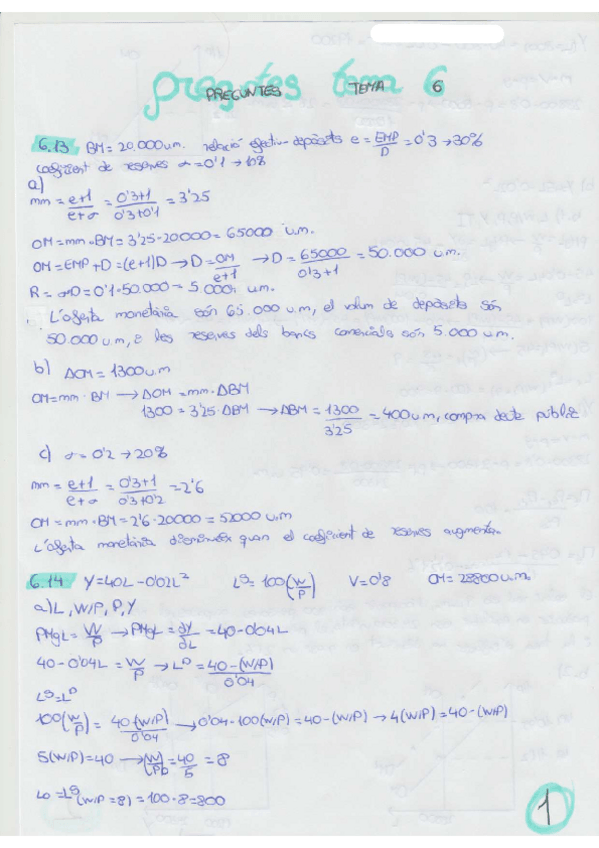 pregntes tem 6
PREGUNTES TEMA 6
6.13 BM = 20.000 u.m. relació efectiu-depòsits e = EMP/D = 0'3 → 30%
coeficient de reserves σ = 0'1 → 10%
a)
mm = e+1/e+σ = 0'3+1/0'3+0'1 = 3'25
OM = mm·BM = 3'25·20000 = 65000 u.m.
OM = EMP + D = (e+1)D → D = OM/e+1 → D = 65000/0'3+1 = 50.000 u.m.
R = σD = 0'1·50.000 = 5.000 u.m.
L'oferta monetària són 65.000 u.m, el volum de depòsits són
50.000 u.m, i les reserves dels bancs comercials són 5.000 u.m.
b) ΔOM = 1300 u.m
OM = mm · BM → ΔOM = mm·ΔBM
1300 = 3'25·ΔBM → ΔBM = 1300/3'25 = 400 u.m, compra deute públic
c) σ = 0'2 → 20%
mm = e+1/e+σ = 0'3+1/0'3+0'2 = 2'6
OM = mm·BM = 2'6·20000 = 52000 u.m
L'oferta monetària disminueix quan el coeficient de reserves augmenta.
6.14 Y = 40L - 0'02L² Lˢ = 100(W/P) V = 0'8 OM = 28800 u.m.
a) L, W/P, P, Y
PMgL = W/P → PMgL = ∂Y/∂L = 40 - 0'04L
40 - 0'04L = W/P → Lᴰ = 40-(W/P)/0'04
Lˢ = Lᴰ
100(W/P) = 40-(W/P)/0'04 → 0'04·100(W/P) = 40-(W/P) → 4(W/P) = 40-(W/P)
5(W/P) = 40 → (W/P)₀ = 40/5 = 8
L₀ = Lˢ(W/P = 8) = 100·8 = 800
1